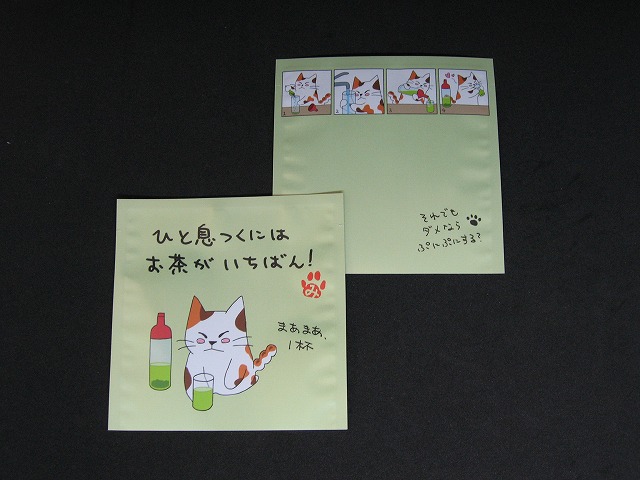 ひと息つくには
お茶がいちばん!
み
まあまあ、
1杯
1.
2.
3.
4.
それでも
ダメなら
ぷにぷにする?